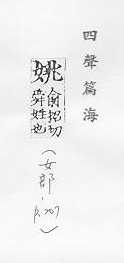 四聲篇海
姚俞招切
舜姓也
(女部,p.707)